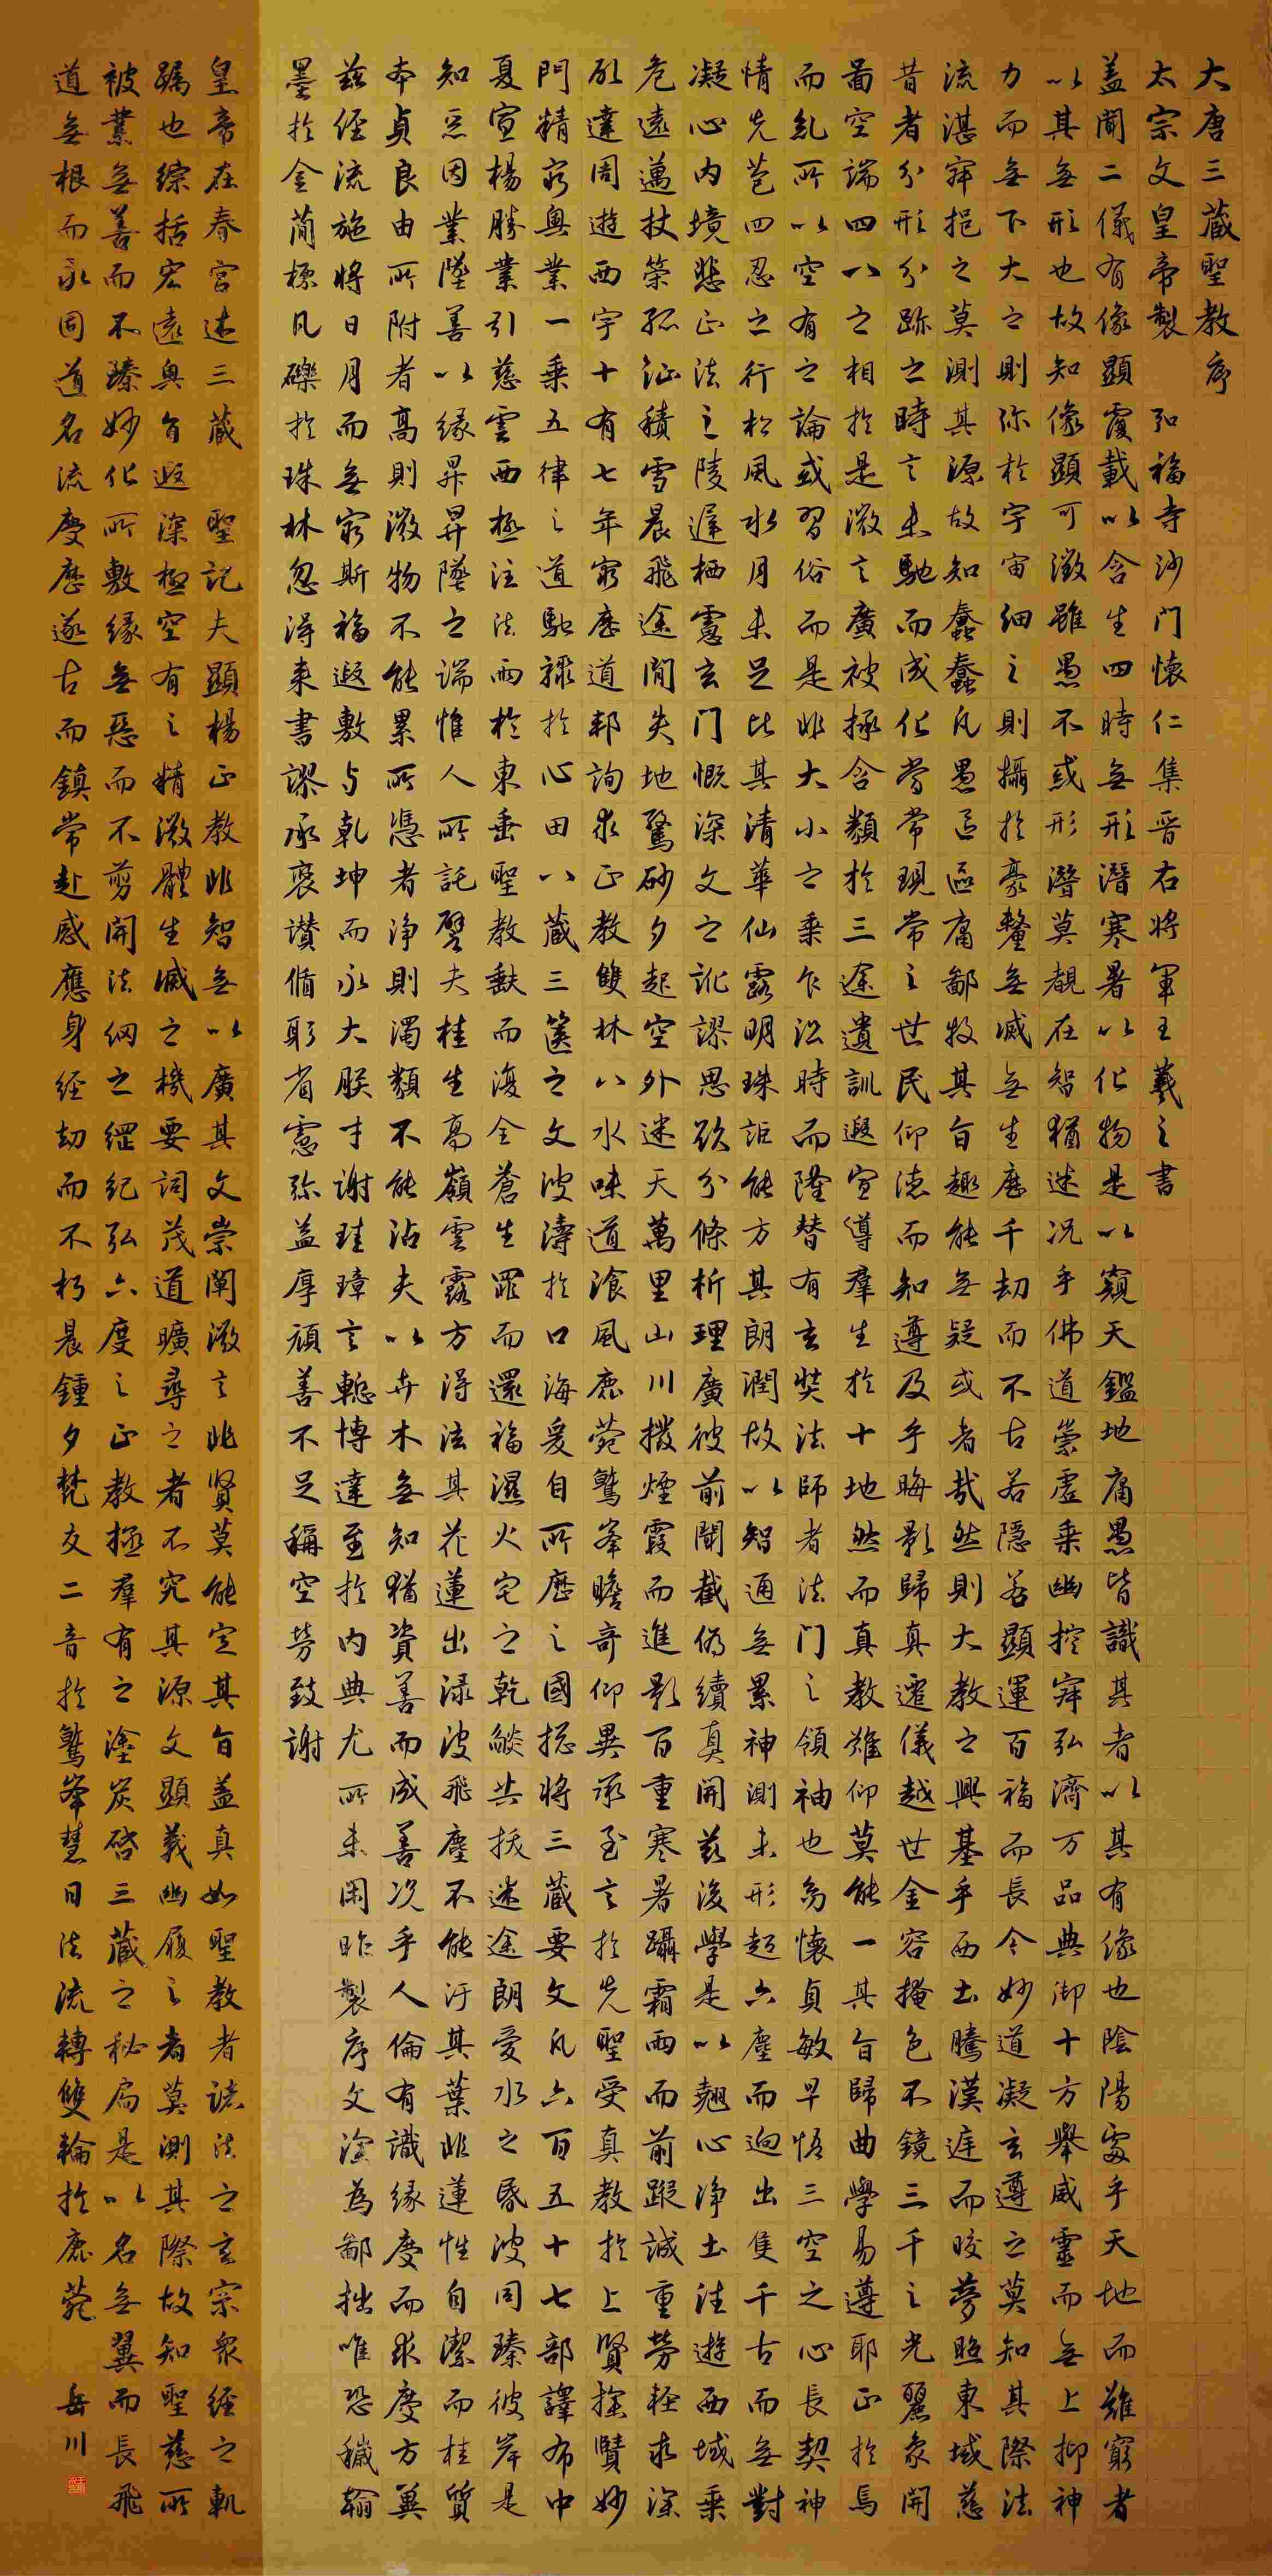 大唐三藏聖教序
太宗文皇帝製 弘福寺沙門懷仁集晉右將軍王羲之書
盖聞二儀有像顯覆載以含生四時無形潛寒暑以化物是以窺天鑑地庸愚皆識其者以其有像也陰陽處乎天地而難窮者
以其無形也故知像顯可徵雖愚不惑形潛莫覩在智猶迷況乎佛道崇虛乘幽控寂弘濟万品典御十方舉威靈而無上抑神
力而無下大之則弥於宇宙細之則攝於豪釐無滅無生歷千劫而不古若隱若顯運百福而長今妙道凝玄遵之莫知其際法
流湛寂挹之莫測其源故知蠢蠢凡愚區區庸鄙投其旨趣能無疑或者哉然則大教之興基乎西土騰漢庭而皎夢照東域慈
昔者分形分跡之時言未馳而成化當常現常之世民仰德而知遵及乎晦影歸真遷儀越世金容掩色不鏡三千之光麗象開
啚空端四八之相於是微言廣被拯含類於三途遺訓遐宣導羣生於十地然而真教難仰莫能一其旨歸曲學易遵耶正於焉
而乱所以空有之論或習俗而是非大小之乘乍沿時而隆替有玄奘法師者法門之領袖也幼懷貞敏早悟三空之心長契神
情先苞四忍之行松風水月未足比其清華仙露明珠詎能方其朗潤故以智通無累神測未形超六塵而迥出隻千古而無對
凝心內境悲正法之陵遲栖慮玄門慨深文之訛謬思欲分條析理廣彼前聞截偽續真開茲後學是以翹心淨土往遊西域乘
危遠邁杖策孤征積雪晨飛途閒失地驚砂夕起空外迷天萬里山川撥煙霞而進影百重寒暑躡霜雨而前蹤誠重勞輕求深
願達周遊西宇十有七年窮歷道邦詢求正教雙林八水味道飡風鹿菀鷲峯瞻奇仰異承至言於先聖受真教於上賢探賾妙
門精窮奧業一乘五律之道馳驟於心田八藏三篋之文波濤於口海爰自所歷之國揔將三藏要文凡六百五十七部譯布中
夏宣楊勝業引慈雲西極注法雨於東垂聖教缺而復全蒼生罪而還福濕火宅之乾燄共拔迷途朗愛水之昏波同臻彼岸是
知惡因業墜善以緣昇昇墜之端惟人所託譬夫桂生高嶺雲露方得泫其花蓮出淥波飛塵不能汙其葉非蓮性自潔而桂質
本貞良由所附者高則微物不能累所憑者淨則濁類不能沾夫以卉木無知猶資善而成善況乎人倫有識緣慶而求慶方冀
茲經流施將日月而無窮斯福遐敷与乾坤而永大朕才謝珪璋言慙博達至於內典尤所未閑昨製序文深為鄙拙唯恐穢翰
墨於金簡標瓦礫於珠林忽得來書謬承褒讚循躬省慮弥益厚顏善不足稱空勞致謝
皇帝在春宮述三藏 聖記夫顯楊正教非智無以廣其文崇闡微言非賢莫能定其旨盖真如聖教者諸法之玄宗衆經之軌
躅也綜括宏遠奧旨遐深極空有之精微體生滅之機要詞茂道曠尋之者不究其源文顯義幽履之者莫測其際故知聖慈所
被業無善而不臻妙化所敷緣無惡而不剪開法網之綱紀弘六度之正教拯羣有之塗炭啓三藏之秘扃是以名無翼而長飛
道無根而永固道名流慶歷遂古而鎮常赴感應身經劫而不朽晨鍾夕梵交二音於鷲峯慧日法流轉雙輪於鹿菀 岳川